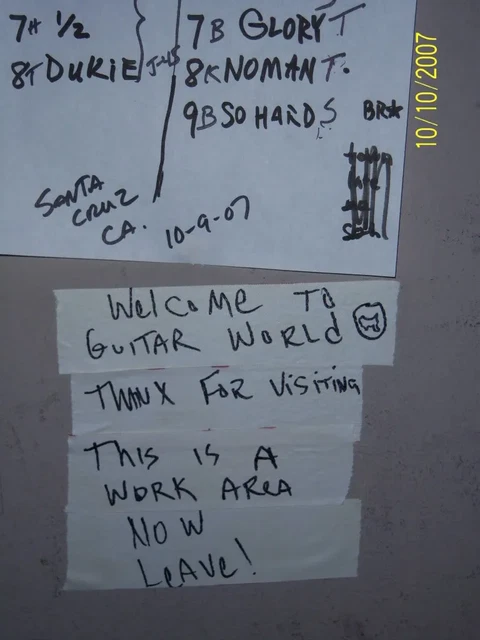 7H 1/2
8T DUKIE
7B GLORY T
8K NOMAN T.
9B SO HARD S
BR
SANTA
CRUZ
CA.
10-9-07
10/10/2007
WelCOME TO
GUITAR WORLD
THANX FOR VISITING
THIS IS A
WORK AREA
NOW
LEAVE!